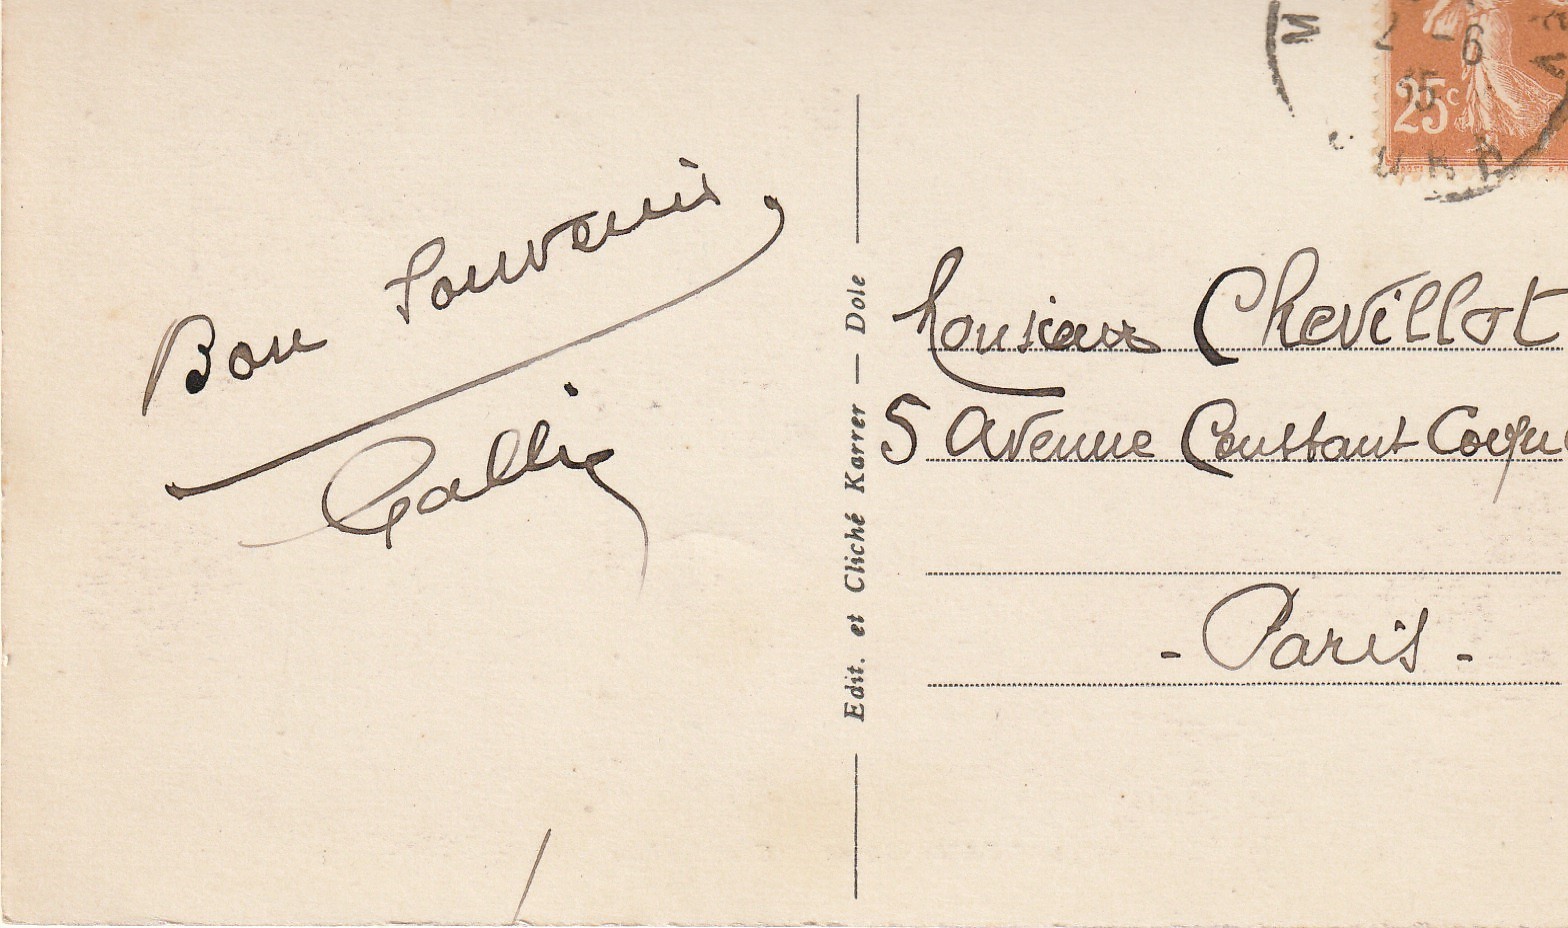 Bon Souvenir
Edit. et Cliché Karrer — Dole
25c
Monsieur Chevillot
5 Avenue Constant Coque
- Paris -